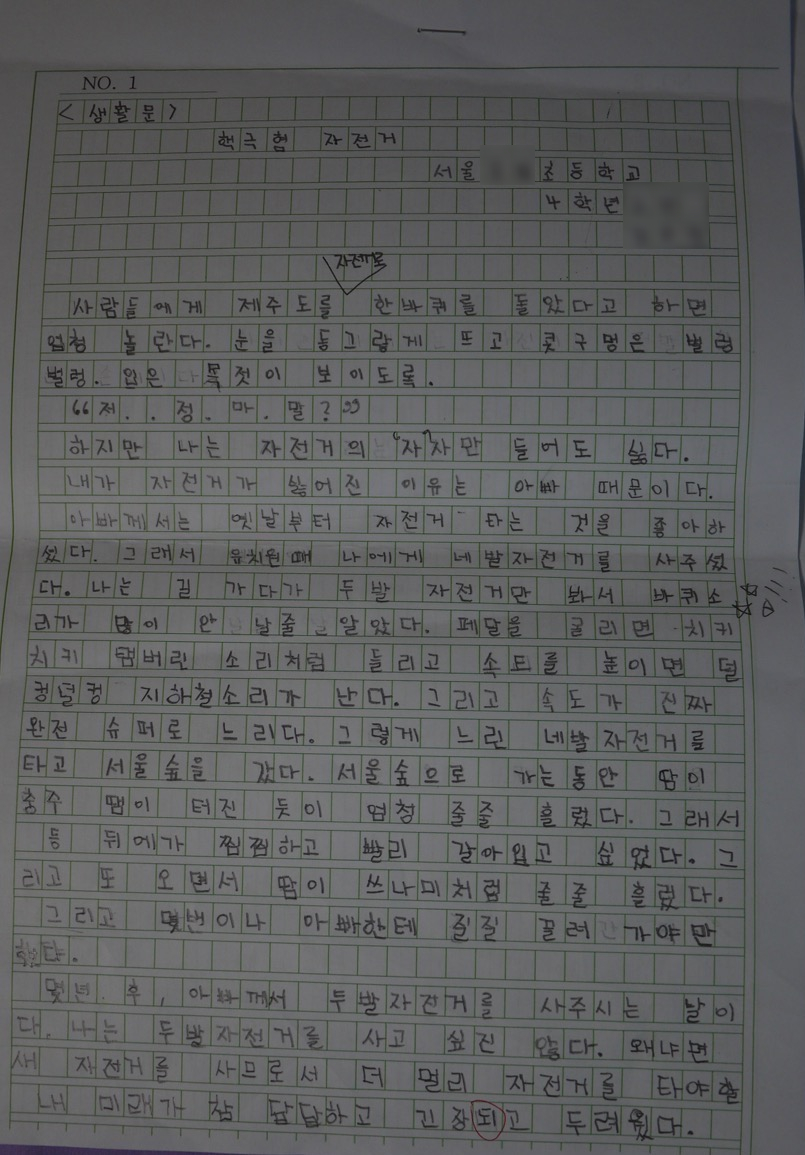 NO. 1
<생활문>
핵극혐 자전거
서울 초등학교
4학년
자전거로
사람들에게 제주도를 한바퀴를 돌았다고 하면
엄청 놀란다. 눈을 동그랗게 뜨고 콧구멍은 벌렁
벌렁. 입은 목젖이 보이도록.
"저. . 정. 마. 말?"
하지만 나는 자전거의 '자'자만 들어도 싫다.
내가 자전거가 싫어진 이유는 아빠 때문이다.
아빠께서는 옛날부터 자전거 타는 것을 좋아하
셨다. 그래서 유치원때 나에게 네발자전거를 사주셨
다. 나는 길 가다가 두발 자전거만 봐서 바퀴소
리가 많이 안 날줄 알았다. 페달을 굴리면 치키
치키 탬버린 소리처럼 들리고 속도를 높이면 덜
컹덜컹 지하철소리가 난다. 그리고 속도가 진짜
완전 슈퍼로 느리다. 그렇게 느린 네발자전거를
타고 서울숲을 갔다. 서울숲으로 가는동안 땀이
충주 땜이 터진 듯이 엄청 줄줄 흘렀다. 그래서
등 뒤에가 찜찜하고 빨리 갈아입고 싶었다. 그
리고 또 오면서 땀이 쓰나미처럼 줄줄 흘렀다.
그리고 몇번이나 아빠한테 질질 끌려가야만
했다.
몇년 후, 아빠께서 두발자전거를 사주시는 날이
다. 나는 두발자전거를 사고 싶진 않다. 왜냐면
새 자전거를 사므로서 더 멀리 자전거를 타야할
내 미래가 참 답답하고 긴장되고 두려웠다.